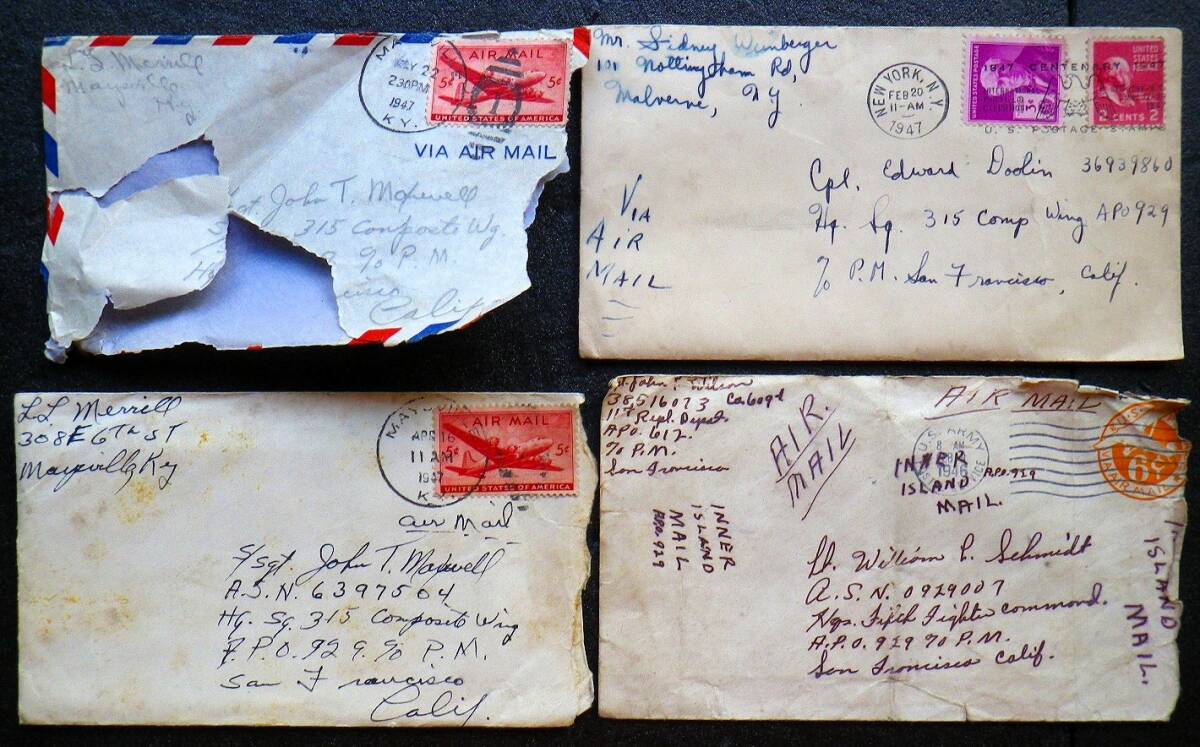 L L Merrill
Maysville
Ky
MAY 22
2 30 PM
1947
KY.
AIR MAIL
5¢ 5¢
UNITED STATES OF AMERICA
VIA AIR MAIL
Sgt John T. Maxwell
315 Composite Wg.
% P. M.
Calif
Mr. Sidney Weinberger
101 Nottingham Rd,
Malverne, NY
NEW YORK, N.Y.
FEB 20
11-AM
1947
1947 CENTENARY 1947
UNITED STATES POSTAGE
3¢
UNITED STATES
2 CENTS 2
U.S. POSTAGE STAMP
VIA
AIR
MAIL
Cpl. Edward Doolin 36939860
Hq. Sq. 315 Comp Wing APO 929
% P.M. San Francisco, Calif.
L.L Merrill
308 E 6TH ST
Maysville, Ky
APR 16
11 AM
1947
K
AIR MAIL
5¢ 5¢
UNITED STATES OF AMERICA
Air Mail
S/Sgt. John T. Maxwell
A.S.N. 6397504
Hq. Sq. 315 Composite Wing
A.P.O. 929. % P. M.
San Francisco
Calif.
John Wilson
38516073
11th Repl. Depot
APO. 612.
% P.M.
San Francisco
AIR.
MAIL
AIR MAIL
U.S. ARMY
8 AM
1946
U.S.
6¢
VIA AIR MAIL
INNER
ISLAND
MAIL.
A.P.O. 929
INNER
ISLAND
MAIL
APO. 929
Lt. William L. Schmidt
A.S.N. 0929007
Hqs. Fifth Fighter Command.
A.P.O. 929 % P.M.
San Francisco Calif.
ISLAND
MAIL.